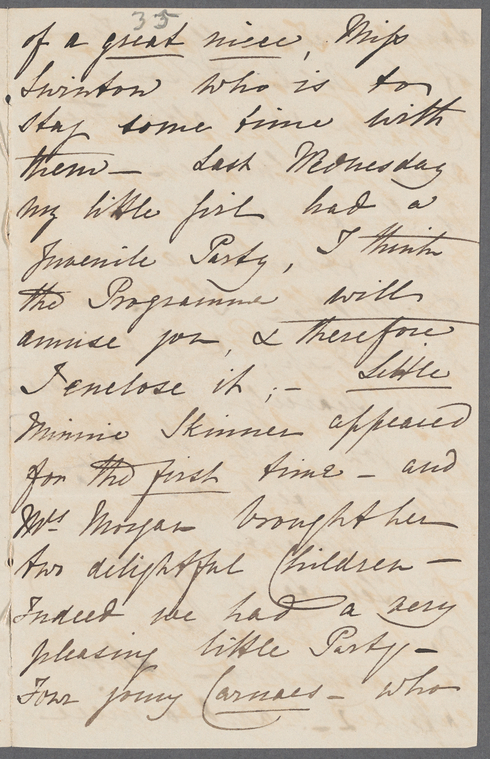 35
of a great niece, Miss
Swinton who is to
stay some time with
them — Last Wednesday
my little girl had a
Juvenile Party, I think
the Programme will
amuse you, & therefore
I enclose it ; — Little
Minnie Skinner appeared
for the first time — and
Mrs Morgan brought her
two delightful Children —
Indeed we had a very
pleasing little Party —
Four young Carnacs — who